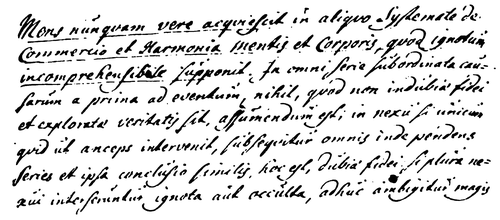 Mens nunquam vere acquiescit in aliquo Systemate de
Commercio et Harmonia mentis et Corporis, quod ignotum
incomprehensibile supponit. In omni serie subordinata cau-
sarum a prima ad eventum, nihil, quod non indubiæ fidei
et exploratæ veritatis sit, assumendum est; in nexu si unicum
quid ut anceps intervenit, subsequitur omnis inde pendens
series et ipsa conclusio similis, hoc est, dubiæ fidei; si plura ne-
xui interseruntur ignota aut occulta, adhuc ambigitur magis